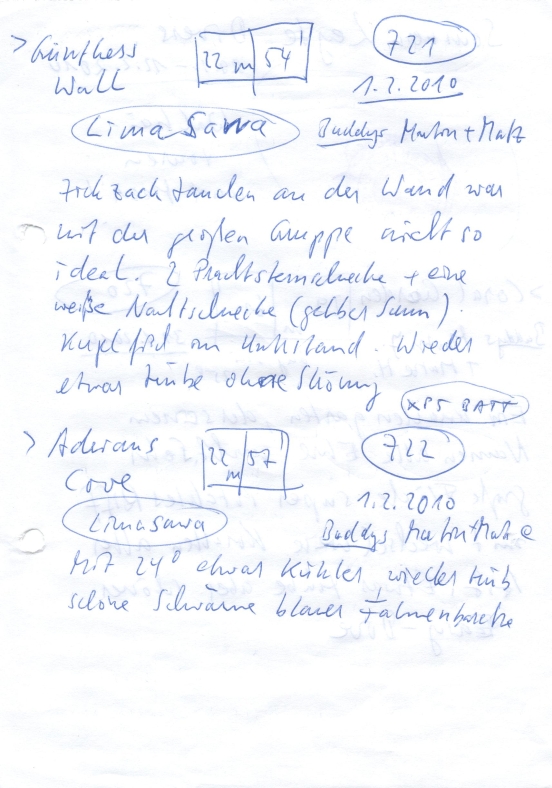 > Günthers | 22 m | 54' | 721
Wall 1.2.2010
Limasawa Buddys Martin + Matz
Zick zack tauchen an der Wand war
mit der großen Gruppe nicht so
ideal. 2 Prachtsternschnecke + eine
weiße Nacktschnecke (gelber Saum).
im Unterstand. Wieder
etwas trübe ohne Strömung XP5 BATT
> Aderans | 22 m | 57' | 722
Cove 1.2.2010
Limasawa Buddys Martin + Matze
Mit 24° etwas Kühler wieder trüb
schöne Schwärme blauer Fahnenbarsche